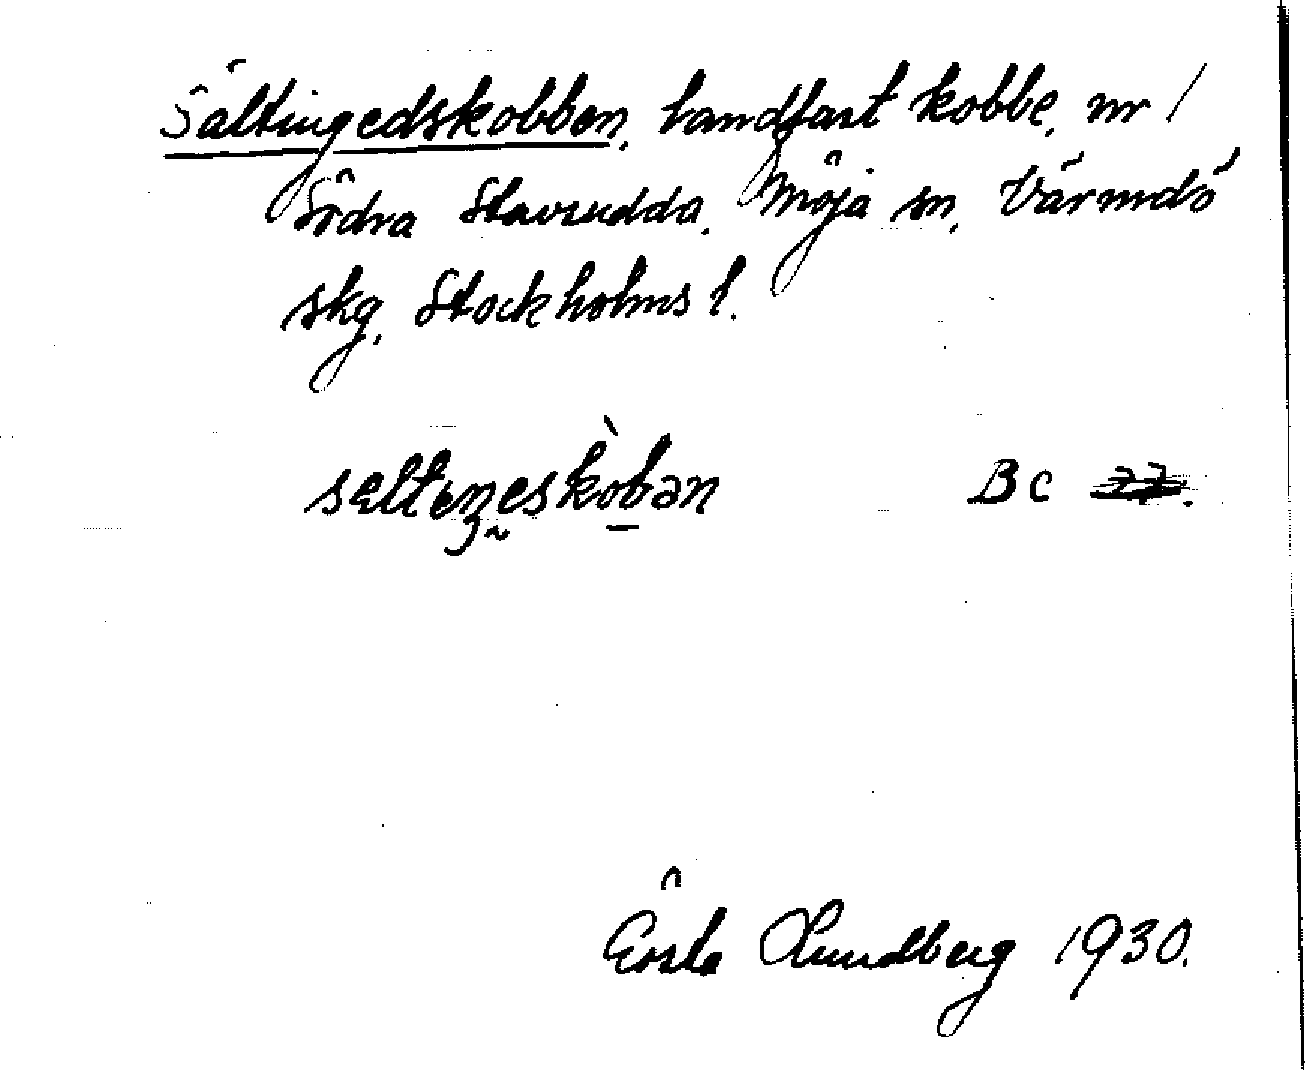 Sältingedskobben, landfast kobbe, nr 1
Södra Stavsudda, Möja sn, Värmdö
skg, Stockholms l.
sælteŋeskòbən Bc
Erik Lundberg 1930.